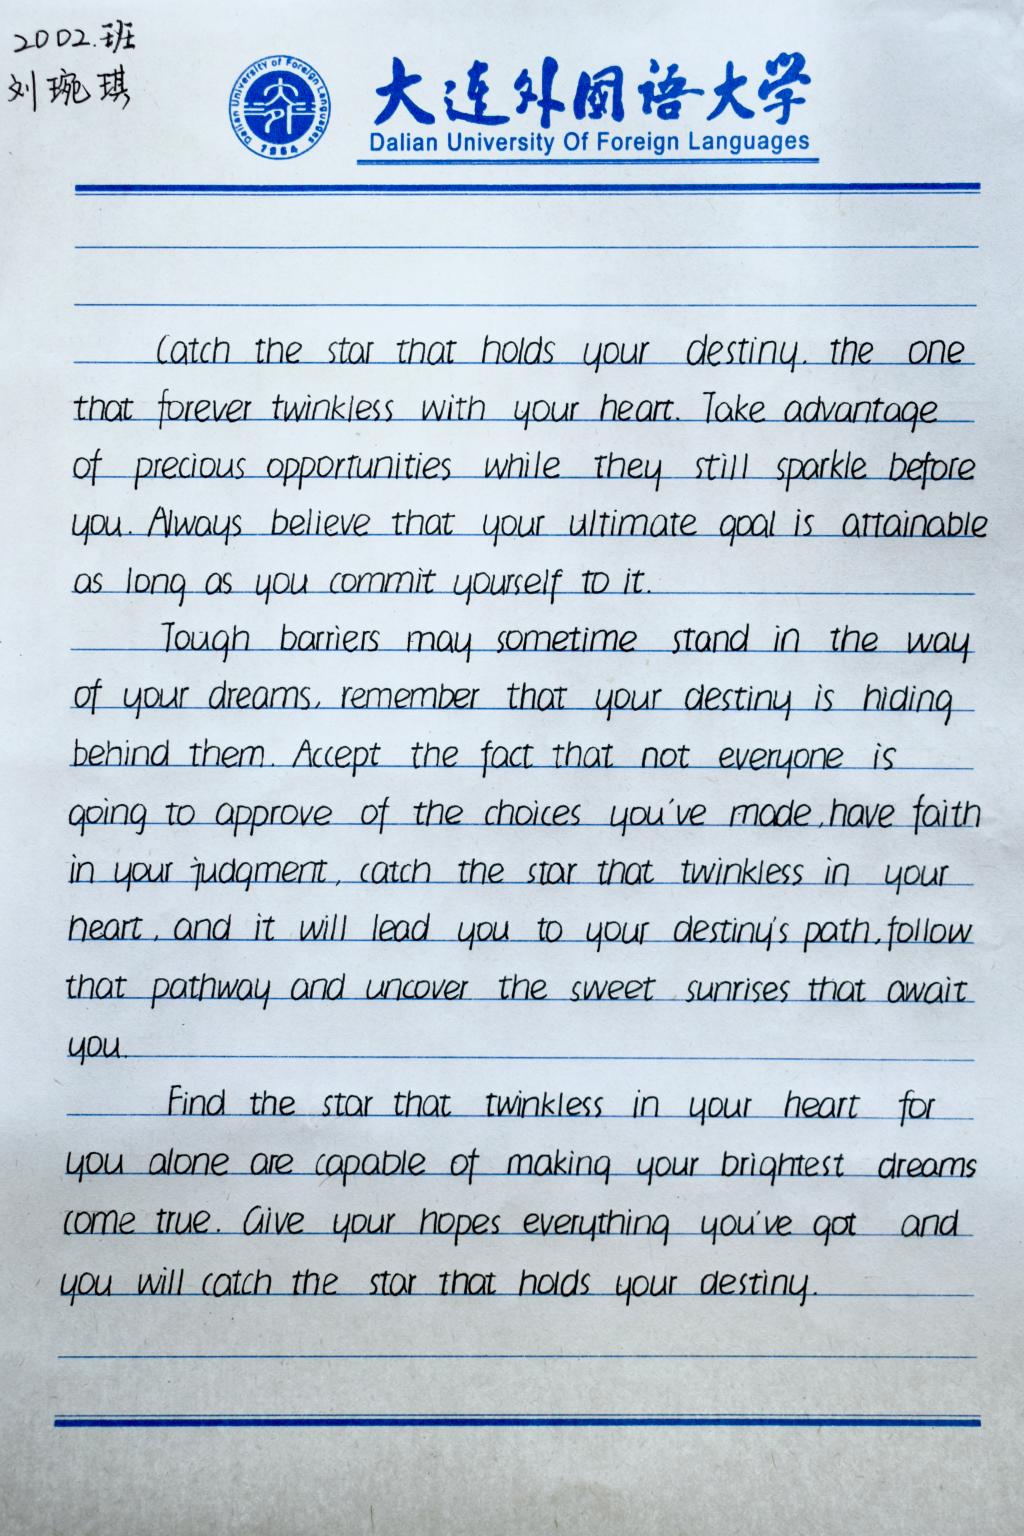 2002.班
刘琬琪
Dalian University of Foreign Languages
大外
1964
大连外国语大学
Dalian University Of Foreign Languages
Catch the star that holds your destiny. the one
that forever twinkless with your heart. Take advantage
of precious opportunities while they still sparkle before
you. Always believe that your ultimate goal is attainable
as long as you commit yourself to it.
Tough barriers may sometime stand in the way
of your dreams, remember that your destiny is hiding
behind them. Accept the fact that not everyone is
going to approve of the choices you've made, have faith
in your judgment, catch the star that twinkless in your
heart, and it will lead you to your destiny's path, follow
that pathway and uncover the sweet sunrises that await
you.
Find the star that twinkless in your heart for
you alone are capable of making your brightest dreams
come true. Give your hopes everything you've got and
you will catch the star that holds your destiny.